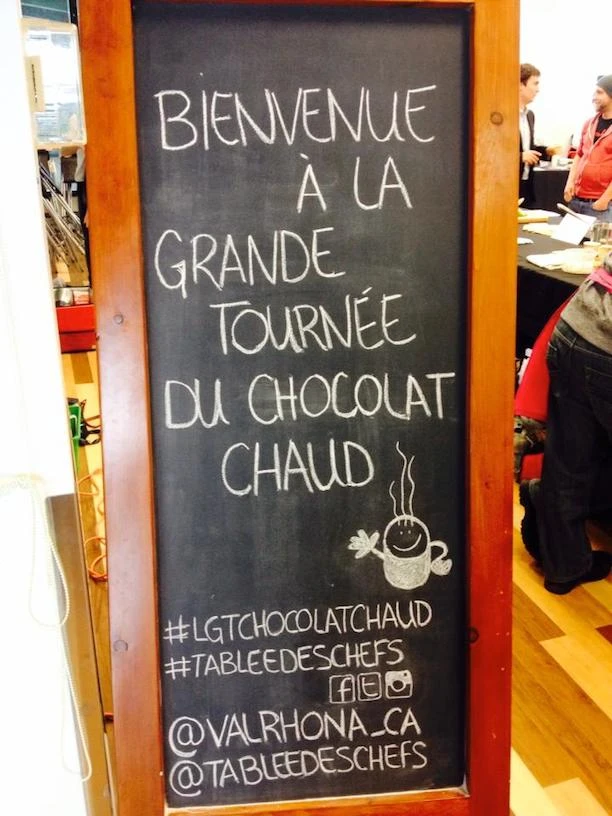 BIENVENUE
À LA
GRANDE
TOURNÉE
DU CHOCOLAT
CHAUD
#LGTCHOCOLATCHAUD
#TABLEEDESCHEFS
f t
@VALRHONA_CA
@TABLEEDESCHEFS